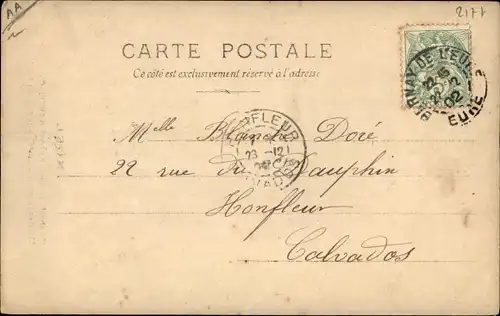 AA
2177
CARTE POSTALE
Ce côté est exclusivement réservé à l'adresse
BERNAY DE L'EURE
EURE
02
HONFLEUR
23 -12
Melle Blanche Doré
22 rue du Dauphin
Honfleur
Calvados